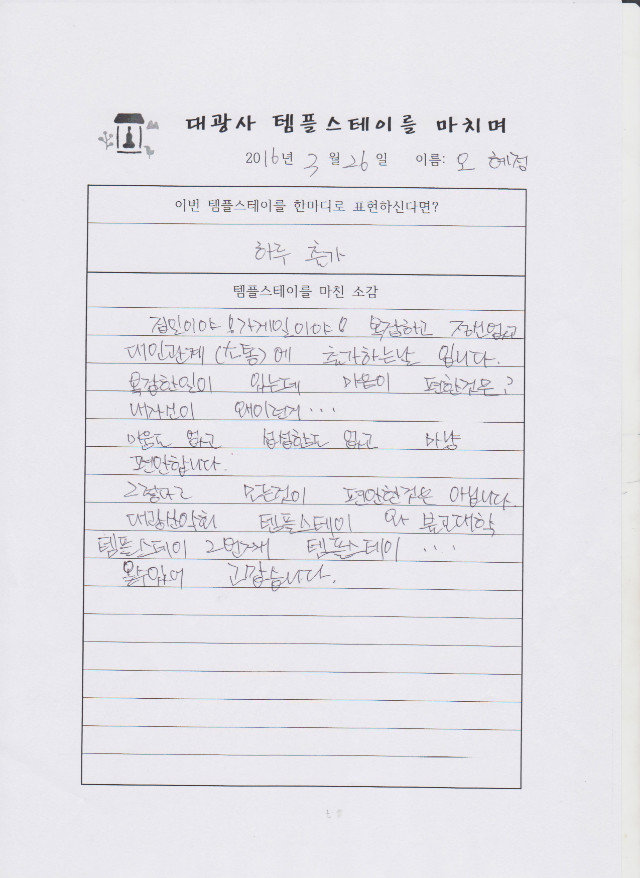 대광사 템플스테이를 마치며
2016년 3월 26일 이름: 오 혜정
이번 템플스테이를 한마디로 표현하신다면?
하루 출가
템플스테이를 마친 소감
집일이야 가게일이야 복잡하고 정신없고
대인관계 (소통)에 출가하는날 입니다.
복잡한일이 있는데 마음이 편한것은?
내자신이 왜이런지...
아움도 없고 섭섭함도 없고 마냥
편안합니다.
그렇다고 모든것이 편안한것은 아닙니다.
대광 템플스테이 와 불교대학
템플스테이 2번째 템플스테이 ...
올수있어 고맙습니다.